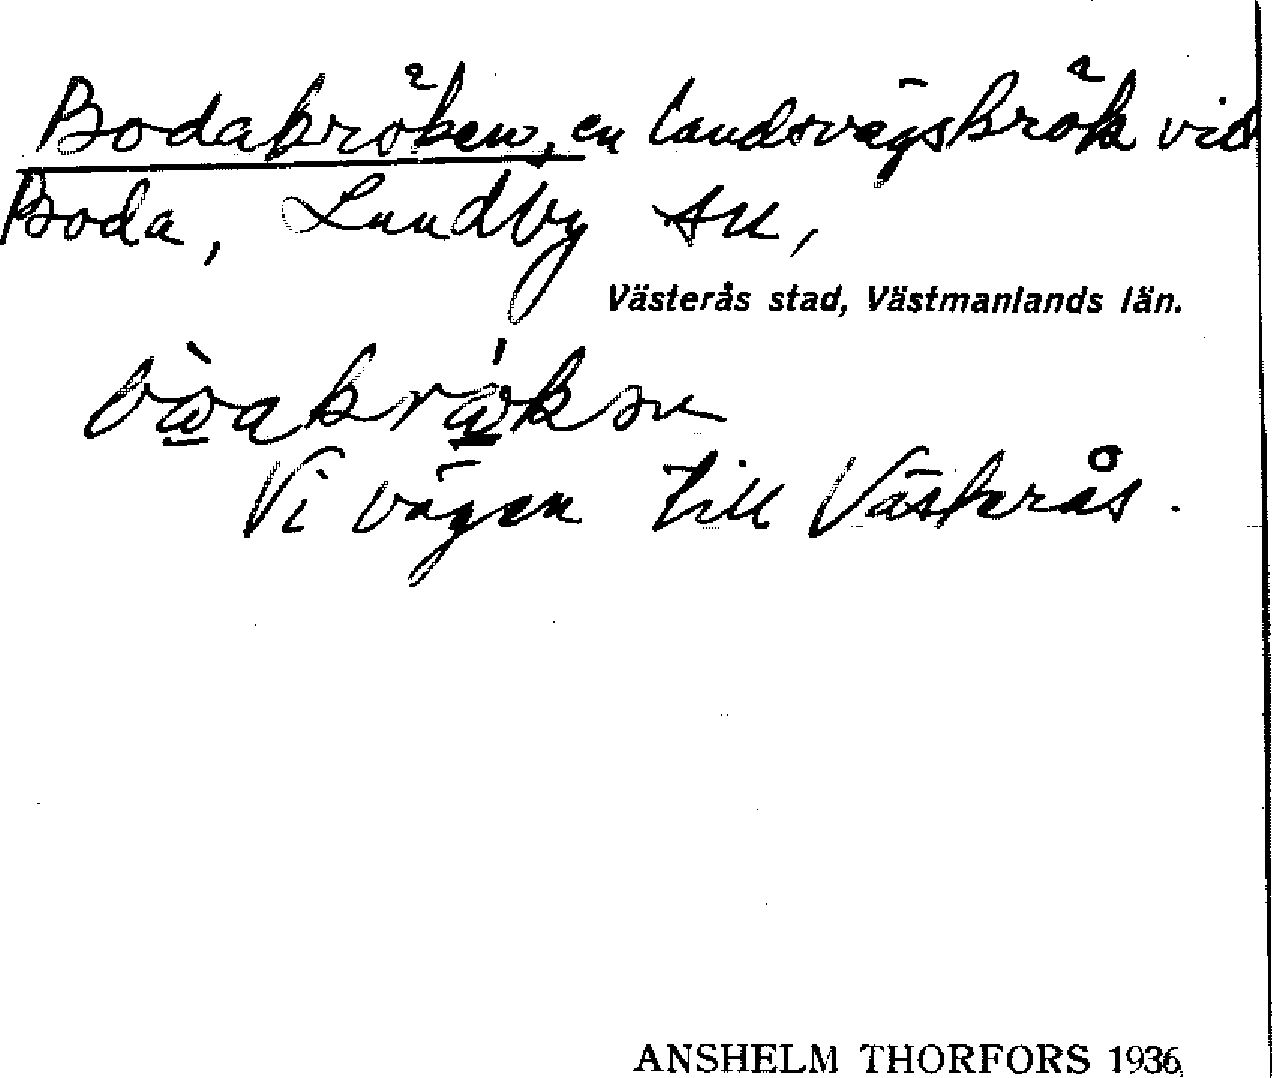 Bodakröken, en landsvägskrök vid
Boda, Lundby sn,
Västerås stad, Västmanlands län.
Vi vägen till Västerås.
ANSHELM THORFORS 1936